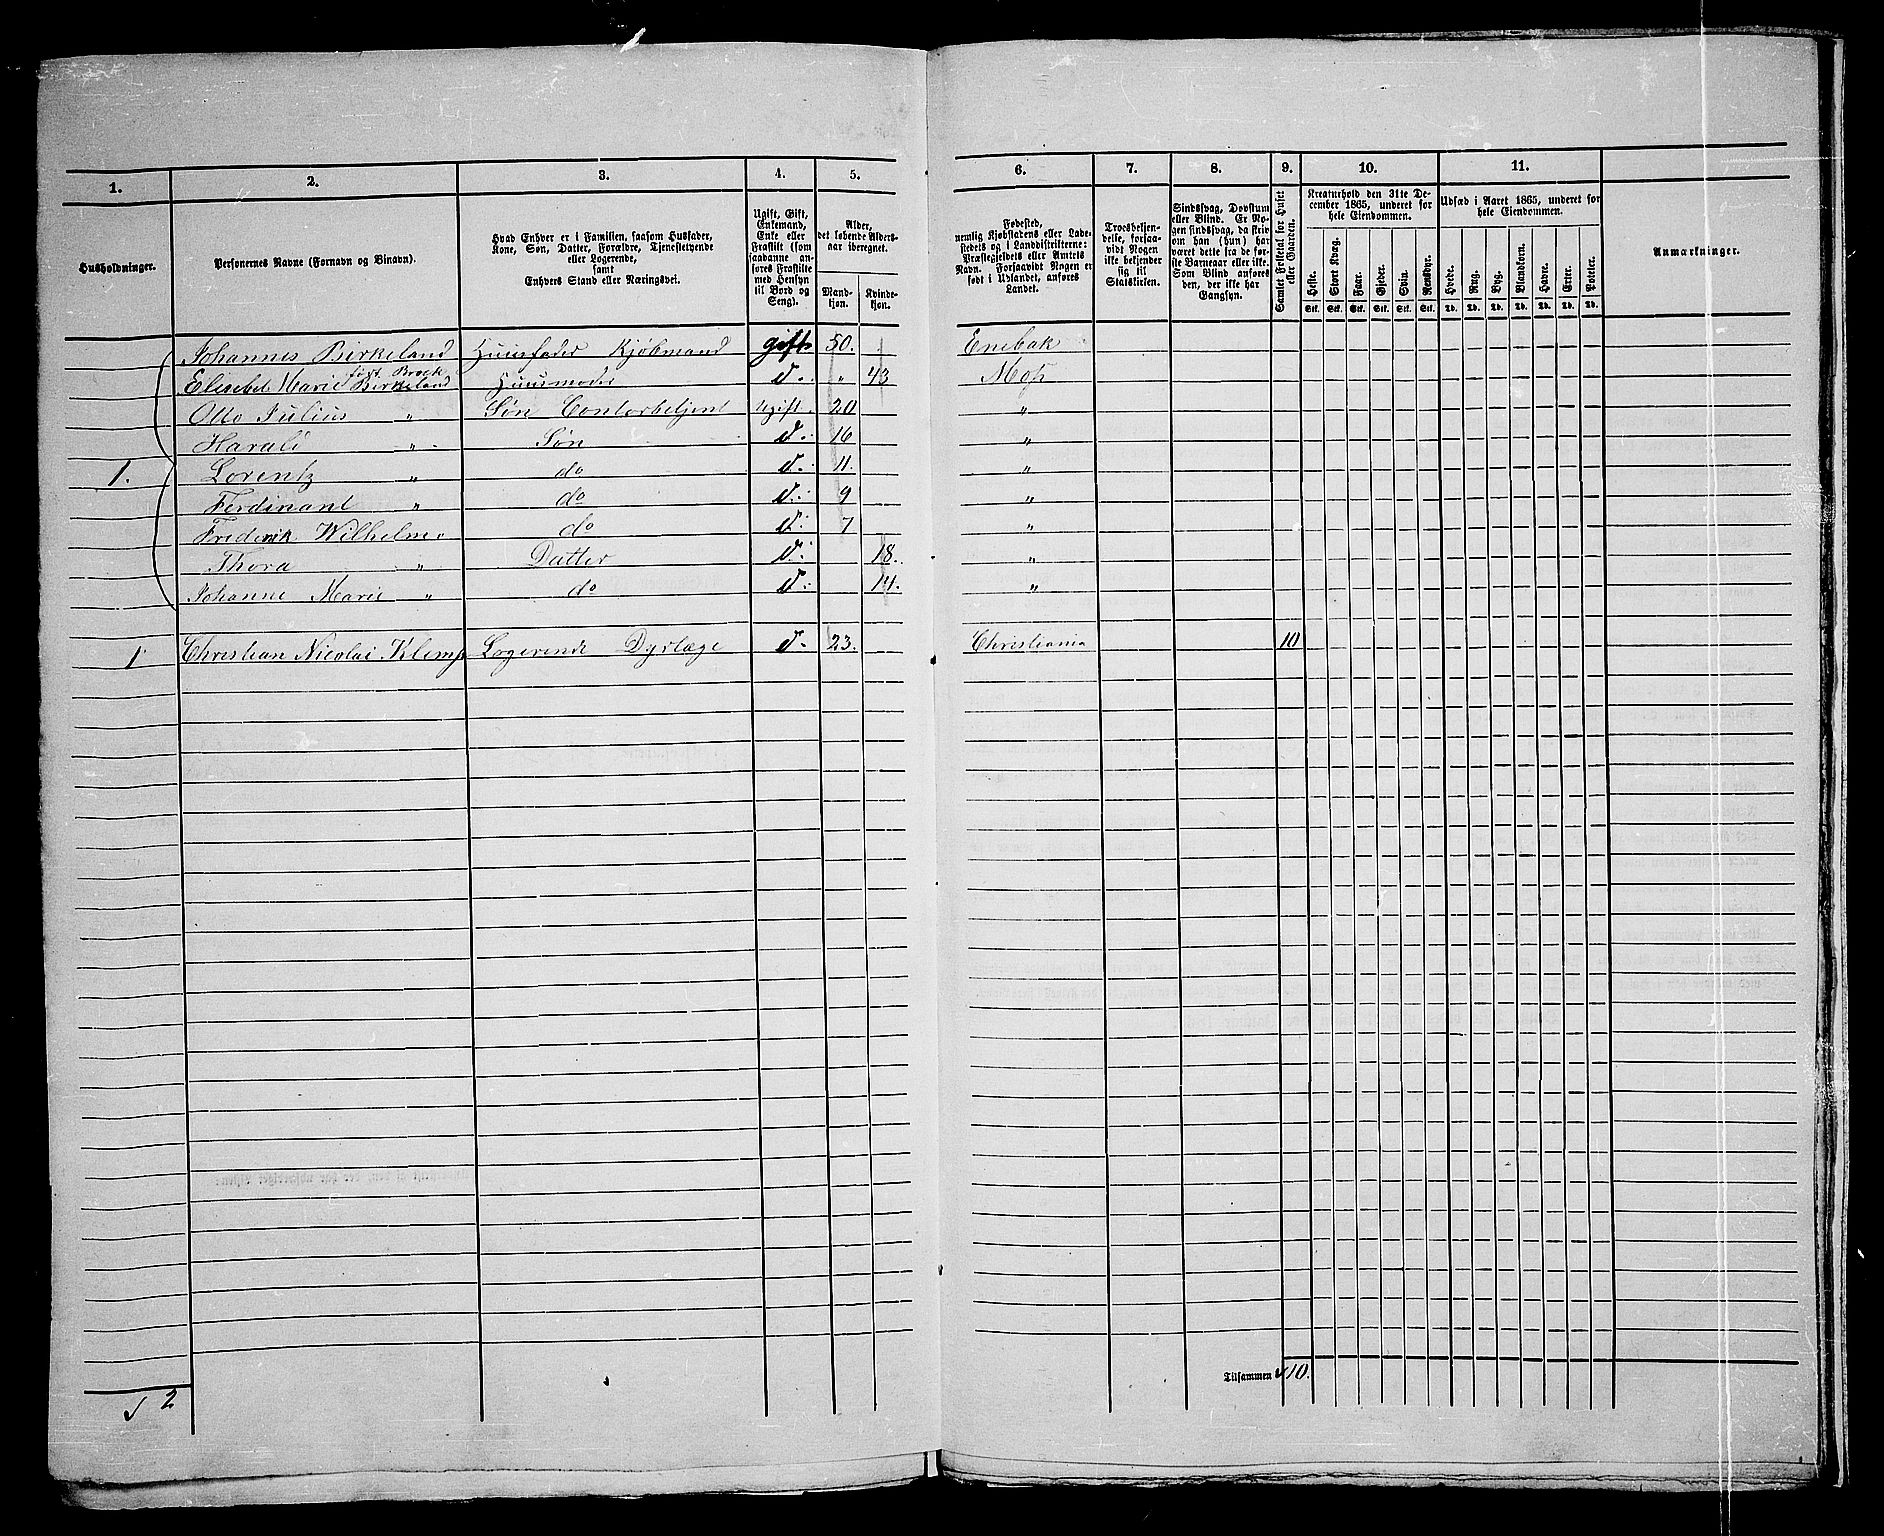 1. 2. 3. 4. 5. 6. 7. 8. 9. 10. 11.
Husholdninger.
Personernes Navne (Fornavn og Binavn).
Hvad Enhver er i Familien, saasom Husfader,
Kone, Søn, Datter, Forældre, Tjenestetyende
eller Logerende,
samt
Enhvers Stand eller Næringsvei.
Ugift, Gift,
Enkemand,
Enke eller
Fraskilt (som
saadanne an-
føres Fraskilte
med Hensyn
til Bord og
Seng).
Alder,
det løbende Alders-
aar iberegnet.
Mand-
kjøn.
Kvinde-
kjøn.
Fødested,
nemlig Kjøbstadens eller Lade-
stedets og i Landdistrikterne:
Præstegjeldets eller Amtets
Navn. Forsaavidt Nogen er
født i Udlandet, anføres
Landet.
Troesbekjen-
delse, forsaa-
vidt Nogen
ikke bekjender
sig til
Statskirken.
Sindssvag, Døvstum
eller Blind. Er No-
gen sindssvag, da skriv
om han (hun) har
været dette fra de før-
ste Barneaar eller ikke.
Som Blind anføres
den, der ikke har
Gangsyn.
Samlet Folketal for Huset
eller Gaarden.
Kreaturhold den 31te De-
cember 1865, underet for
hele Eiendommen.
Heste.
Stort Kvæg.
Faar.
Gjeder.
Svin.
Rensdyr.
Stk. Stk. Stk. Stk. Stk. Stk.
Udsæd i Aaret 1865, underet for
hele Eiendommen.
Hvede.
Rug.
Byg.
Blandkorn.
Havre.
Erter.
Poteter.
Td. Td. Td. Td. Td. Td. Td.
Anmærkninger.
Johannes Birkeland Huusfader Kjøbmand gift 50. Enebak
født Brock
Elisebet Marie Birkeland Huusmoder d. " 43 Moss
Otto Julius " Søn Contorbetjent Ugift 20 "
Harald " Søn d. 16 "
1. Lorentz " do d. 11. "
Ferdinant " do d. 9 "
Frederik Wilhelm " do d. 7 "
Thora " Datter d. 18. "
Johanne Marie " do d. 14. "
1 Christian Nicolai Klemp Logerende Dyrlæge d. 23. Christiania 10
Tilsammen 10.
2